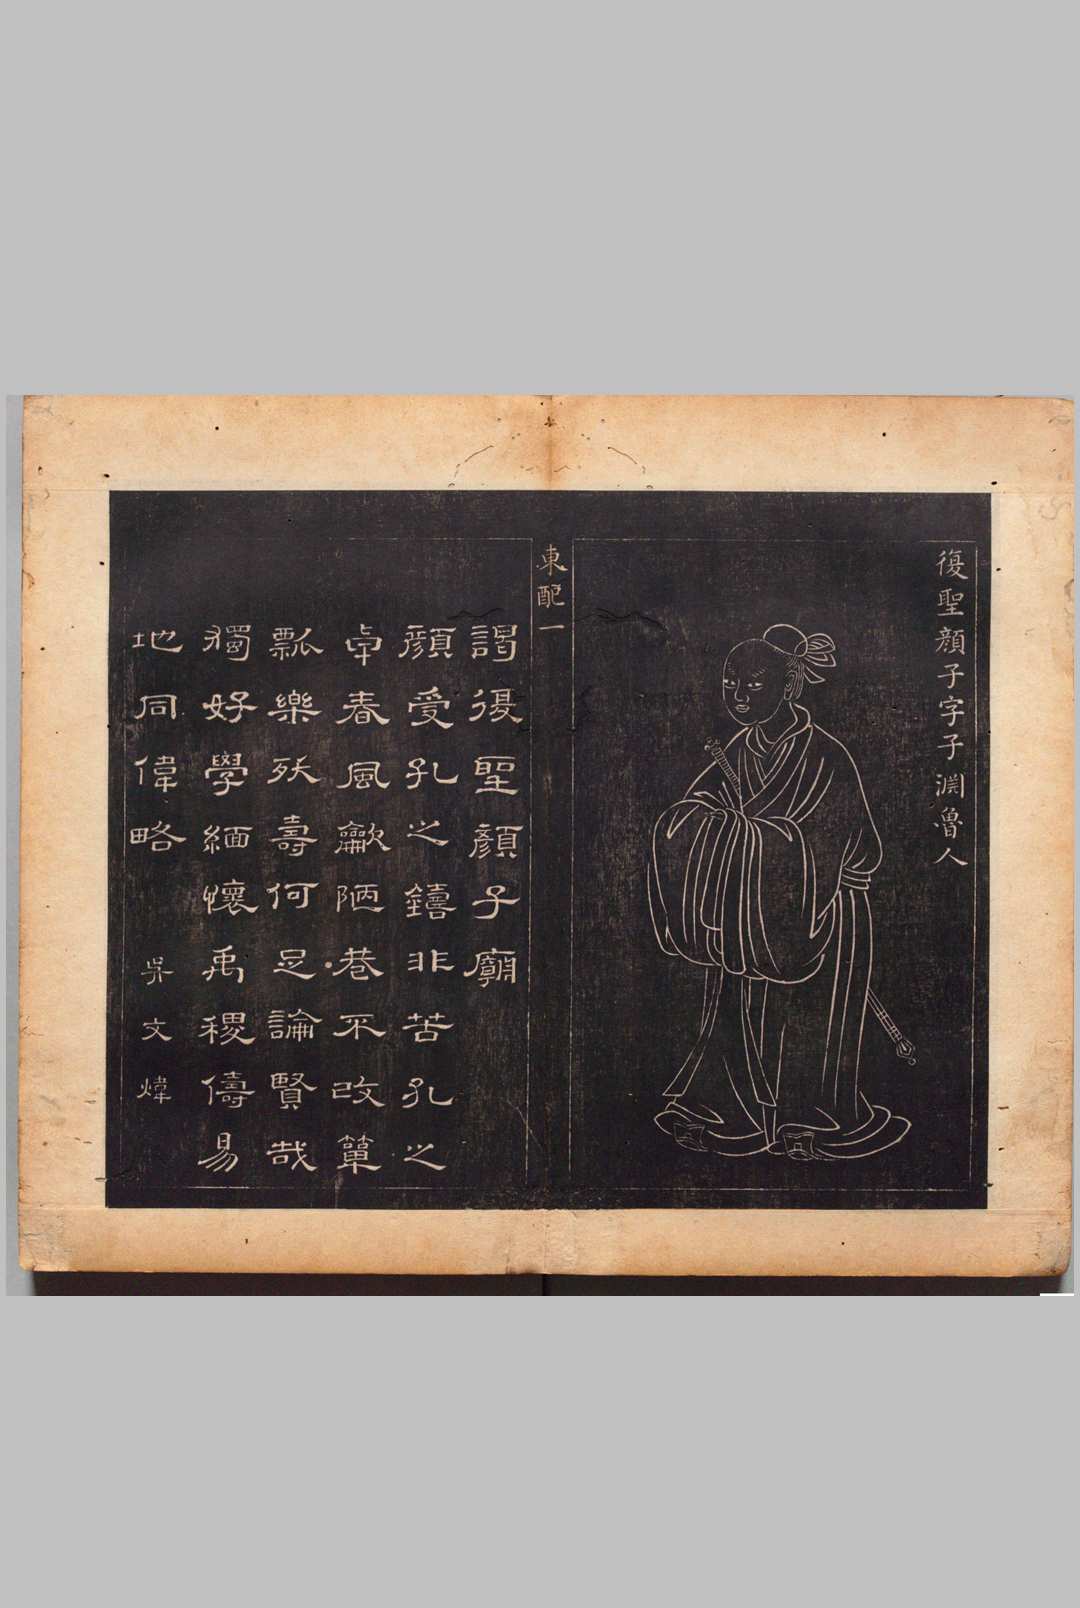 復聖顔子字子淵魯人
東配一
謁復聖顔子廟
顔受孔之鑄非苦孔之
卓春風龡陋巷不改簞
瓢樂殀壽何足論賢哉
獨好學緬懷禹稷儔易
地同偉略　吳文煒